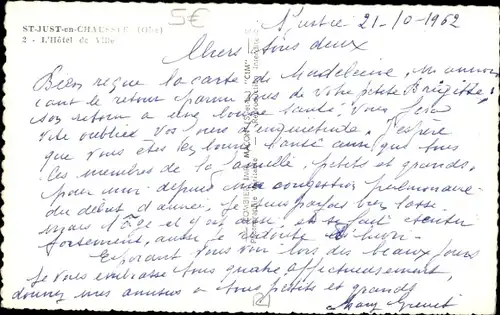 ST-JUST-en-CHAUSSÉE (Oise)
2 - L'Hôtel de Ville
5€
St Just le 21-10-1962
Chers tous deux
Bien reçue la carte de Madeleine, m'annon
çant le retour parmi vous de votre petite Brigitte,
son retour a une bonne santé vous fera
vite oublier vos jours d'inquiétude. J'espère
que vous êtes en bonne santé ainsi que tous
les membres de la famille, petits et grands,
pour moi depuis ma congestion pulmonaire
du début d'année, je suis parfois bien lasse
mais l'âge et se fait sentir
fortement, aussi je
Espérant vous voir lors des beaux jours
Je vous embrasse tous quatre affectueusement,
donnez mes amitiés à tous petits et grands
COMBIER IMP. MACON "CIM"